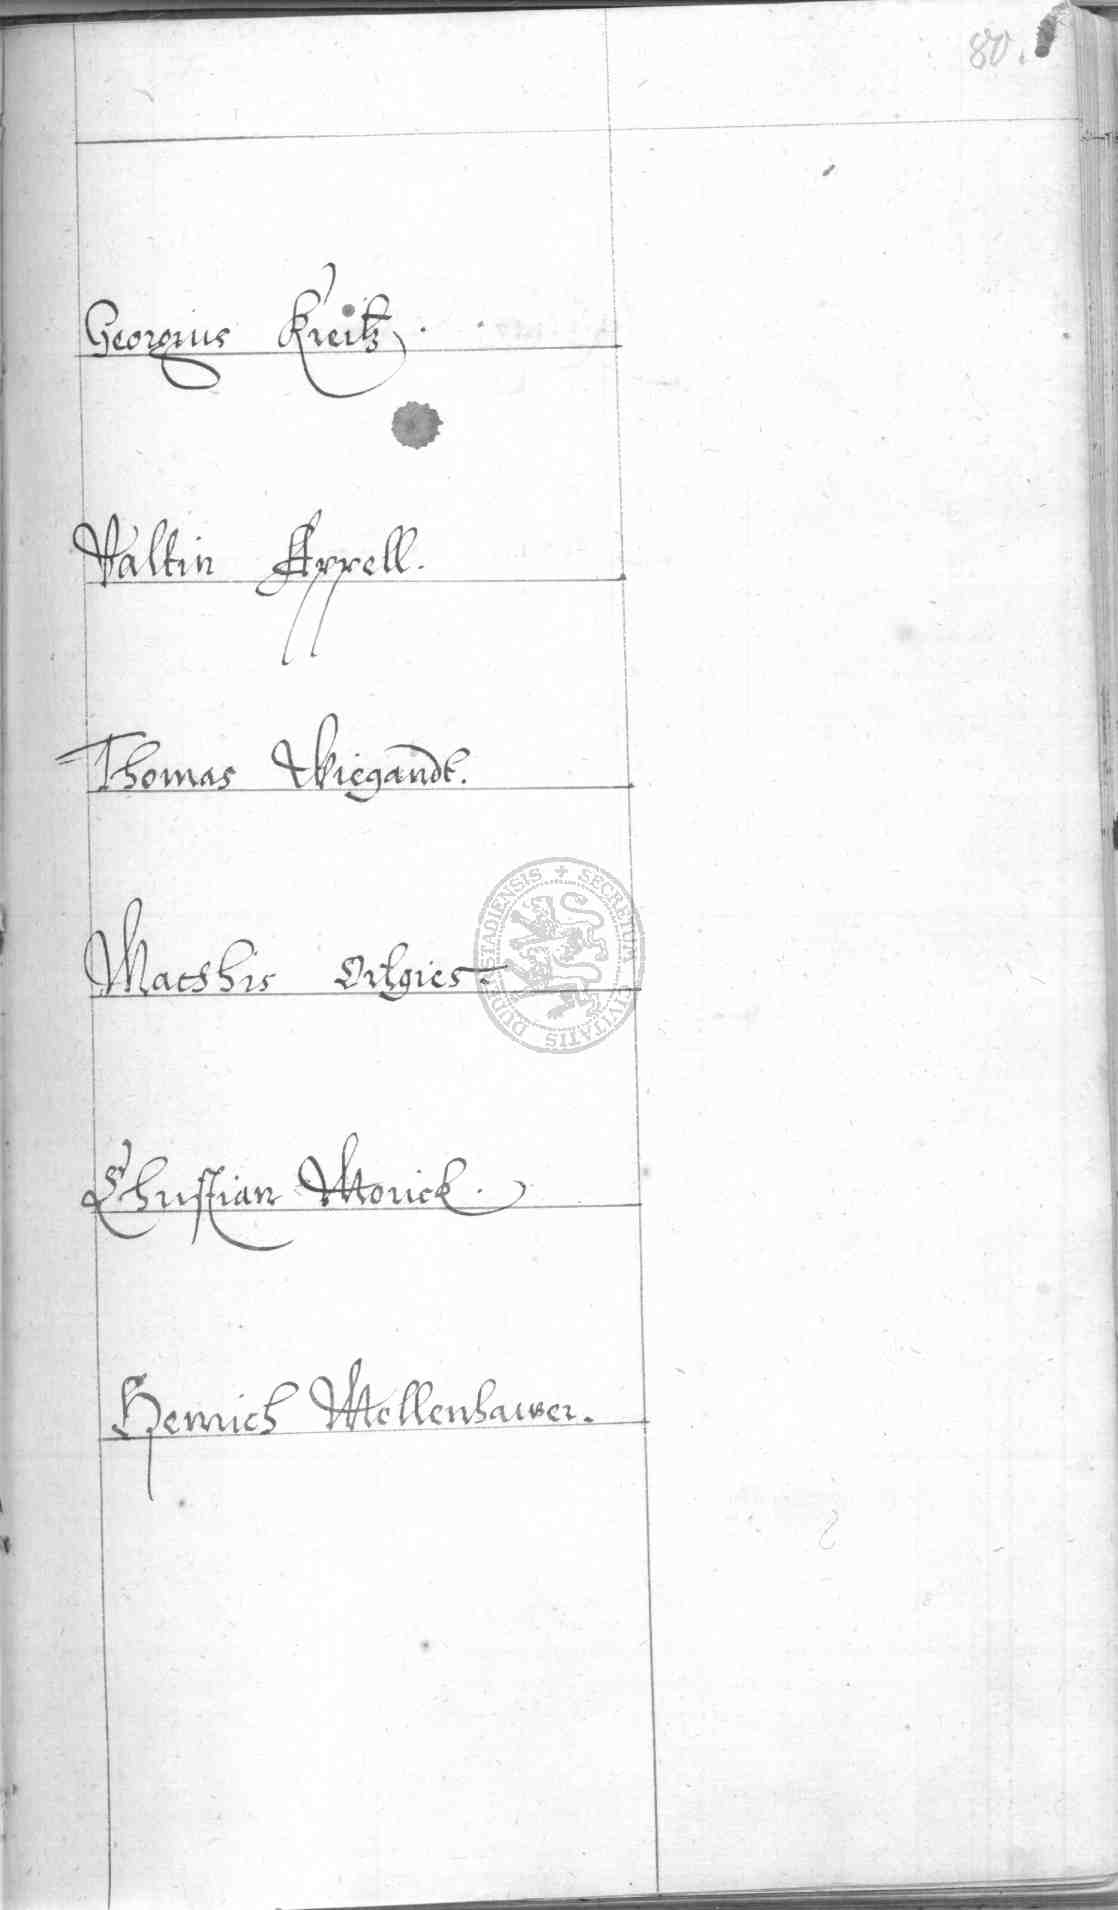 80.
Georgius Kreitz.
Valtin Appell.
Thomas Wiegandt.
Matthis
Christian Morick.
Henrich Mollenhawer.
SECRETUM CIVITATIS DUDERSTADIENSIS